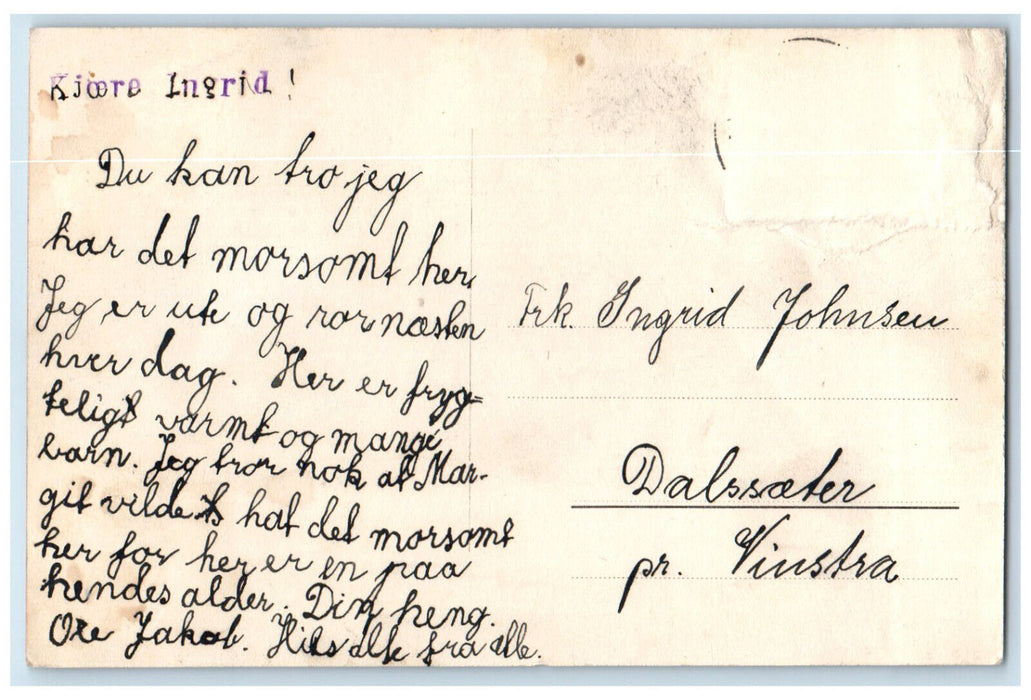 Kjære Ingrid !
Du kan tro jeg
har det morsomt her.
Jeg er ute og ror næsten
hver dag. Her er fryg=
teligt varmt og mange
barn. Jeg tror nok at Mar-
git vilde hat det morsomt
her for her er en paa
hendes alder. Din heng.
Ole Jakob. Hils alle fra alle.
Frk. Ingrid Johnsen
Dalssæter
pr. Vinstra